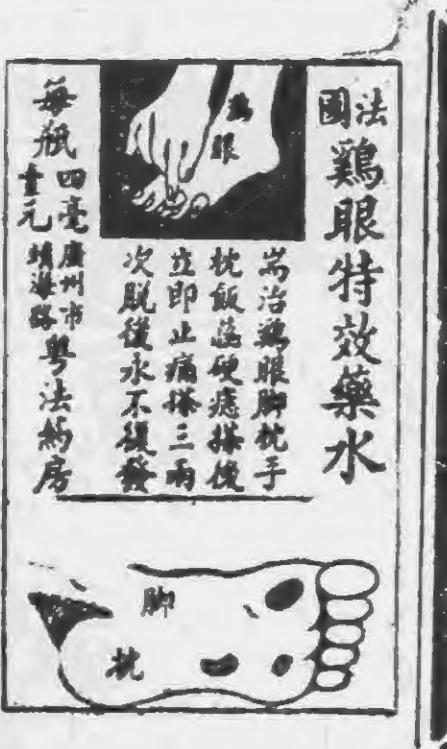 法國
鷄眼特效藥水
鷄眼
耑治鷄眼脚枕手
枕飯蕊硬痣搽後
立即止痛搽三兩
次脫後永不復發
每瓶四毫壹元
廣州市靖海路粵法葯房
脚枕